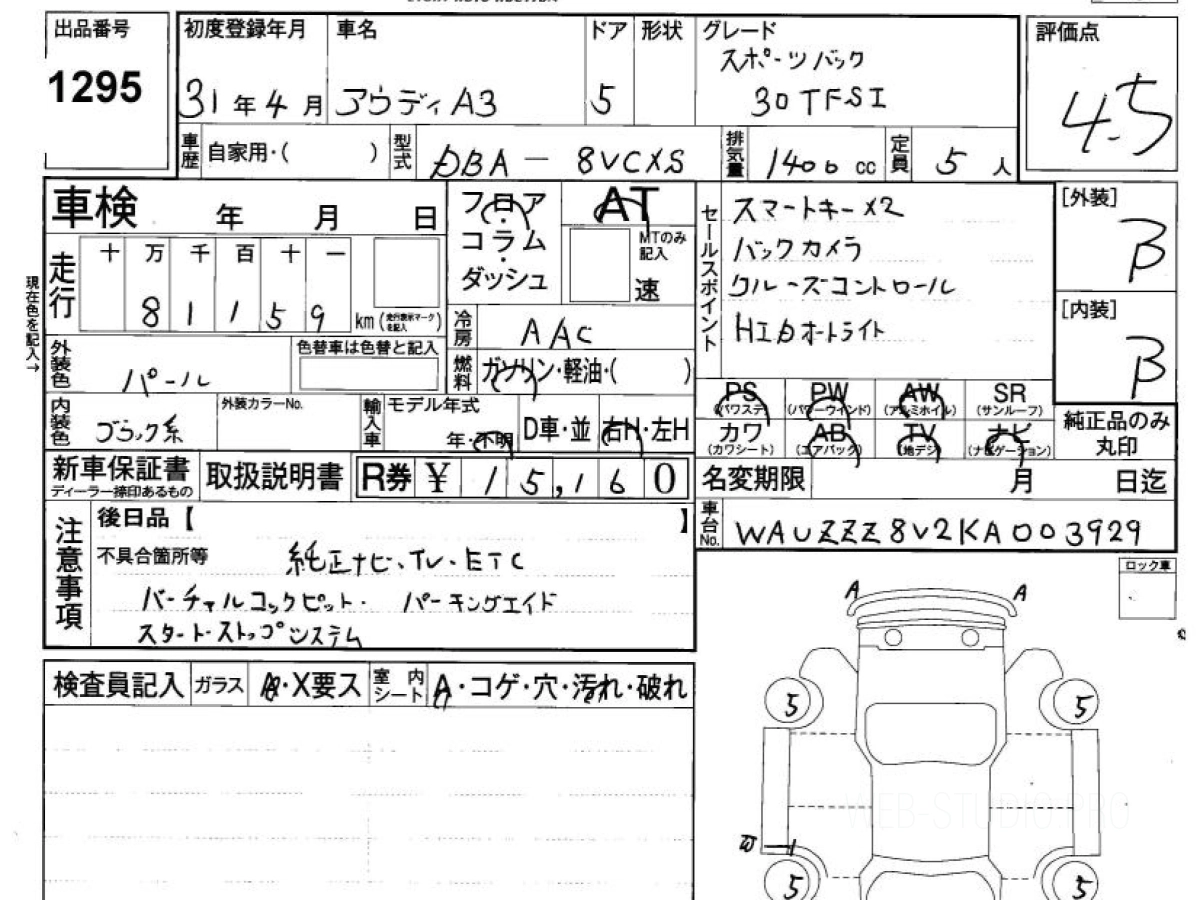 出品番号
1295
初度登録年月
31年4月
車名
アウディA3
ドア
5
形状
グレード
スポーツバック
30TFSI
評価点
4.5
車歴
自家用・( )
型式
DBA-8VCXS
排気量
1400cc
定員
5人
車検 年 月 日
フロア・コラム・ダッシュ
AT
MTのみ記入
速
セールスポイント
スマートキーX2
バックカメラ
クルーズコントロール
HIDオートライト
[外装]
B
[内装]
B
現在色を記入→
走行
十 万 千 百 十 一
8 1 1 5 9 km
(走行表示マークを記入)
冷房
AAC
燃料
ガソリン・軽油・( )
外装色
パール
色替車は色替と記入
内装色
ブラック系
外装カラーNo.
輸入車
モデル年式
年・不明
D車・並
右H・左H
PS
(パワステ)
PW
(パワーウインド)
AW
(アルミホイル)
SR
(サンルーフ)
カワ
(カワシート)
AB
(エアバック)
TV
(地デジ)
ナビ
(ナビゲーション)
純正品のみ
丸印
新車保証書
ディーラー捺印あるもの
取扱説明書
R券 ¥ 15,160
名変期限 月 日迄
車台No.
WAUZZZ8V2KA003929
注意事項
後日品【 】
不具合箇所等
純正ナビ、TV・ETC
バーチャルコックピット・ パーキングエイド
スタート・ストップシステム
ロック車
A A
5 5
検査員記入
ガラス
A・X要ス
室内シート
A・コゲ・穴・汚れ・破れ
WEB-STUDIO.PRO
W-1
5 5